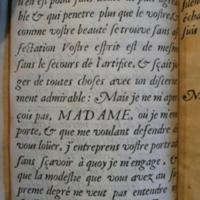 ble & qui penetre plus que le vostre &
comme vostre beauté se trouve sans af-
fectation Vostre esprit est de mesme
sans le secours de l'artifice, & sçait ju-
ger de toutes choses avec un discerne-
ment admirable : Mais je ne m'apper-
çois pas, MADAME, où je m'em-
porte, & que me voulant defendre de
vous loüer, j'entreprens vostre portrait
sans sçavoir à quoy je m'engage, &
que la modestie que vous avez au su-
preme degré ne veut pas entendre